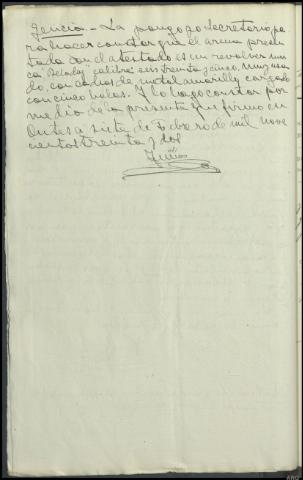 gencia.- La pongo yo Secretario pa
ra hacer constar que el arma presen
tada con el atestado es un revolver mar
ca "Velodog" calibre seis treinta y cinco, muy usa
do, con cachas de metal amarillo cargado
con cinco balas. Y lo hago constar por
medio de la presente que firmo en
a siete de Febrero de mil nove
cientos treinta y dos